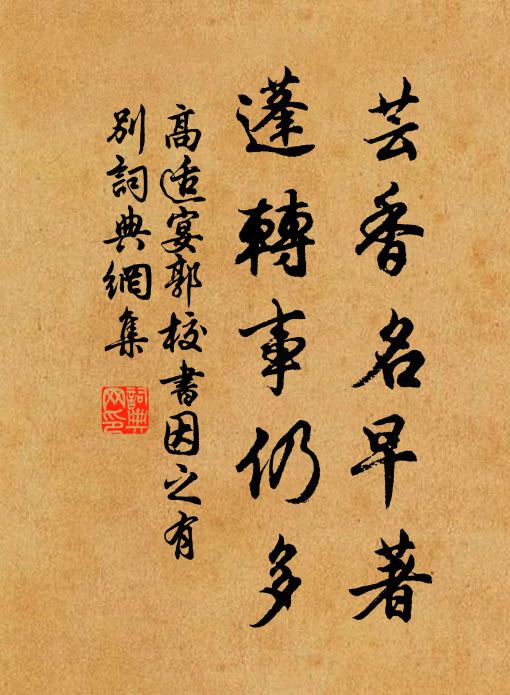 芸香名早著
蓬轉事仍多
高适宴郭校書因之有
別詞典網集
詞典
网印